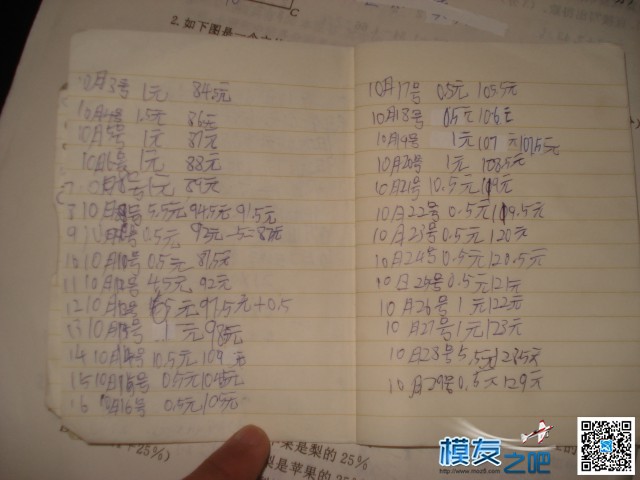 2.如下图是一个
C
10月3号 1元 84.5元
10月4号 1.5元 86元
10月5号 1元 87元
10月6号 1元 88元
1元 89元
8 10月 号 5.5元 94.5元 91.5元
9 号 0.5元 92元-5=87元
10 10月 号 0.5元 87.5元
11 10月 号 4.5元 92元
12 10月 号 5元 97.5元+0.5
13 10月 号 1元 98.5元
14 10月14号 10.5元 109元
15 10月15号 0.5元
16 月16号 0.5元 105元
10月17号 0.5元 105.5元
10月18号 0.5元 106元
10月 号 1元 107元 107.5元
10月20号 1元 108.5元
10月21号 10.5元 119元
10月22号 0.5元 119.5元
10月23号 0.5元 120元
10月24号 0.5元 120.5元
10月25号 0.5元 121元
10月26号 1元 122元
10月27号 1元 123元
10月28号 5.5元 元
10月29号 0.5元 129元
25%)
果是梨的 25%
梨是苹果的
模友之吧
http://www.moz8.com